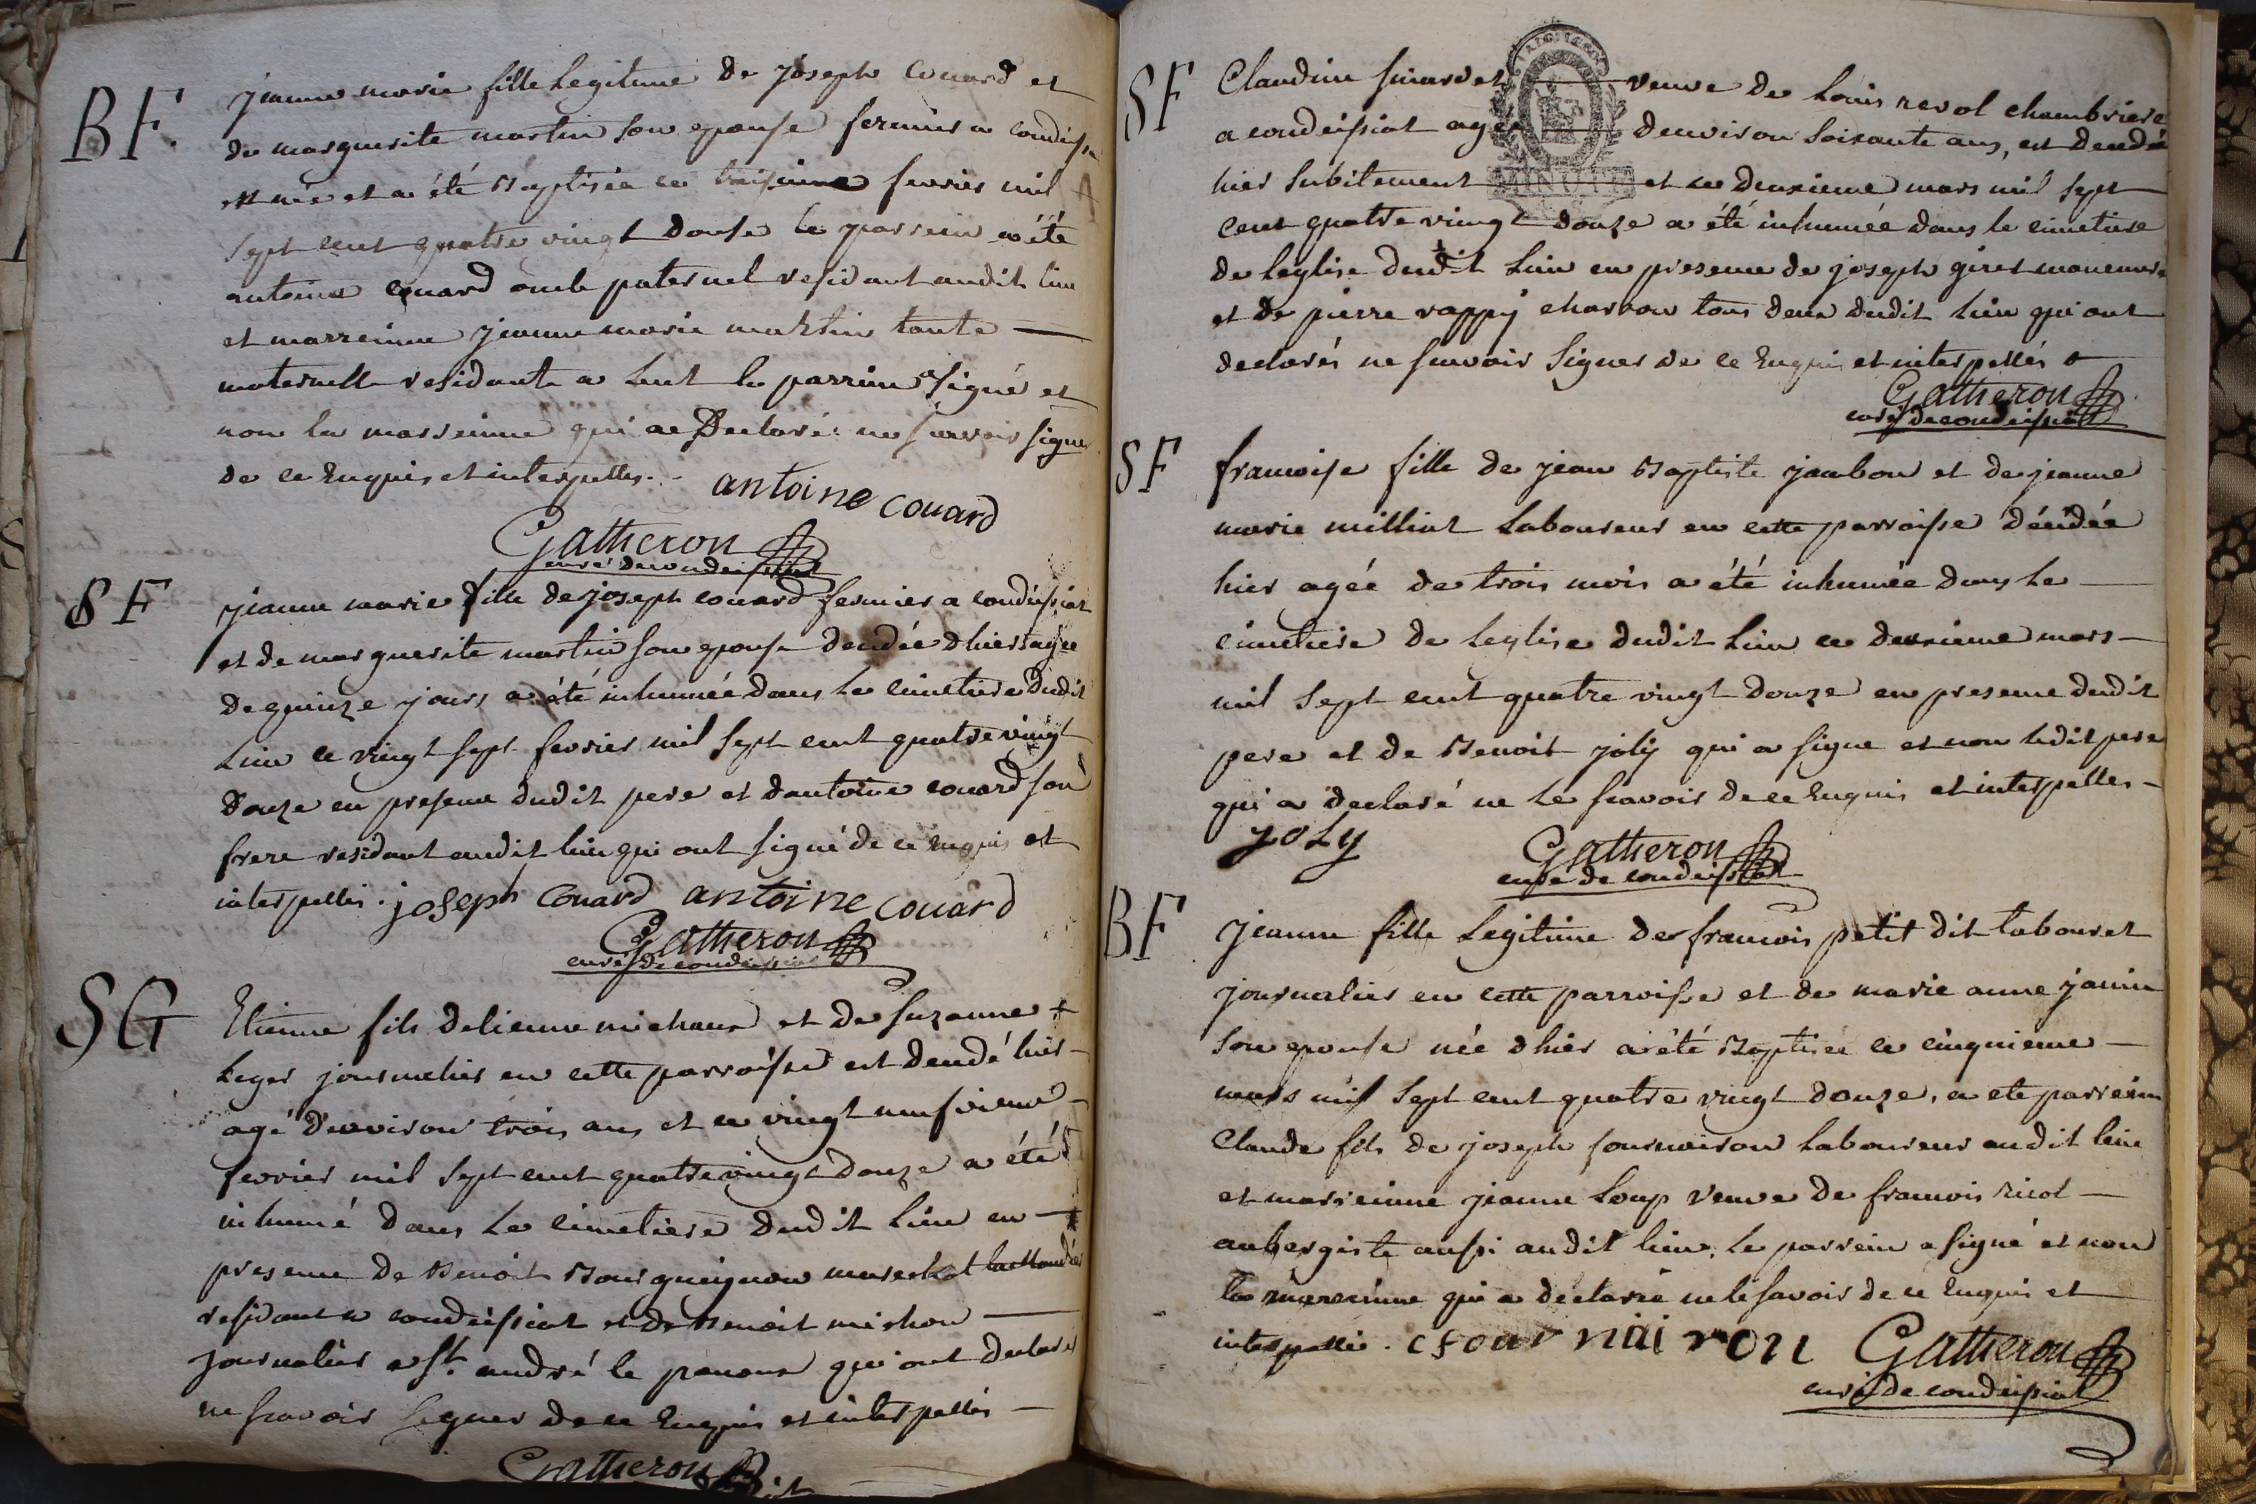 BF
jeanne marie fille legitime de joseph couard et
de marguerite martin son epouse fermier a condeissia
est née et a été Baptisée ce treisieme fevrier mil
sept cent quatre vingt douse le parrein a été
antoine couard oncle paternel residant audit lieu
et marreinne jeanne marie martin tante
maternelle residante a Lent le parrein a signé et
non la marreinne qui a Declaré ne sçavoir signer
de ce Enquis et interpellés.
antoine couard
Gatheron
curé de condeissiat
SF
jeanne marie fille de joseph couard fermier a condeissiat
et de marguerite martin son epouse decedée d'hier agée
de quinze jours a été inhumée dans le cimetiere dudit
Lieu ce vingt sept fevrier mil sept cent quatre vingt
Douze en presence dudit pere et d'antoine couard son
frere residant audit lieu qui ont signé de ce enquis et
interpellés. joseph Couard antoine couard
Gatheron
curé de condeissiat
SG
Etienne fils detienne michaux et de suzanne
Leger journalier en cette parroisse est decedé hier
agé d'environ trois ans et ce vingt neufvieme
fevrier mil sept cent quatre vingt douze a été
inhumé dans le cimetiere dudit Lieu en
presence de Benoit Bourguignon marechal
residant a condeissiat et de Benoit michon
journalier a St. andré le panoux qui ont declarés
ne sçavoir signer de ce Enquis et interpellés
Gatheron
SF
Claudine veuve de Louis revol chambriere
a condeissiat agée denviron soixante ans, est decedée
hier subitement et ce deuxieme mars mil sept
MINUTE
cent quatre vingt douze a été inhumée dans le cimetiere
de leglise dudit Lieu en presence de joseph giret manoeuvre
et de pierre rappy charron tous deux dudit lieu qui ont
declarés ne sçavoir signer de ce Enquis et interpellés
Gatheron
curé de condeissiat
SF
francoise fille de jean Baptiste jambon et de jeanne
marie milliat Laboureur en cette parroisse décédée
hier agée de trois mois a été inhumée dans le
cimetiere de leglise dudit Lieu ce deuxieme mars
mil sept cent quatre vingt douze en presence dudit
pere et de Benoit joly qui a signe et non ledit pere
qui a declaré ne le sçavoir de ce Enquis et interpelles
joly
Gatheron
curé de condeissiat
BF
jeanne fille Legitime de francois petit dit tabouret
journalier en cette parroisse et de marie anne janin
son epouse née d'hier a été Baptisée ce cinquieme
mars mil sept cent quatre vingt douze, a ete parrein
Claude fils de joseph fournairon Laboureur audit lieu
et marreinne jeanne Loup veuve de francois ricol
aubergiste aussi audit lieu, le parrein a signé et non
la marreinne qui a declaré ne le savoir de ce Enquis et
interpellés. cfournairon
Gatheron
curé de condeissiat